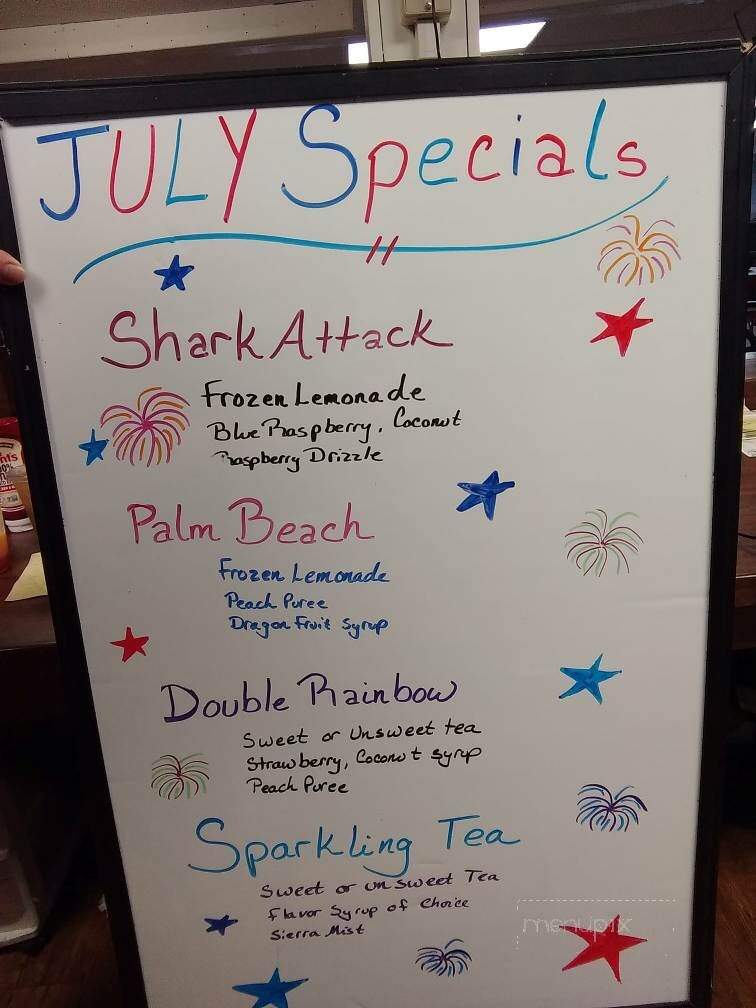 JULY Specials
Shark Attack
Frozen Lemonade
Blue Raspberry, Coconut
Raspberry Drizzle
Palm Beach
Frozen Lemonade
Peach Puree
Dragon Fruit Syrup
Double Rainbow
Sweet or Unsweet tea
Strawberry, Coconut syrup
Peach Puree
Sparkling Tea
Sweet or unsweet Tea
Flavor Syrup of Choice
Sierra Mist
menupix